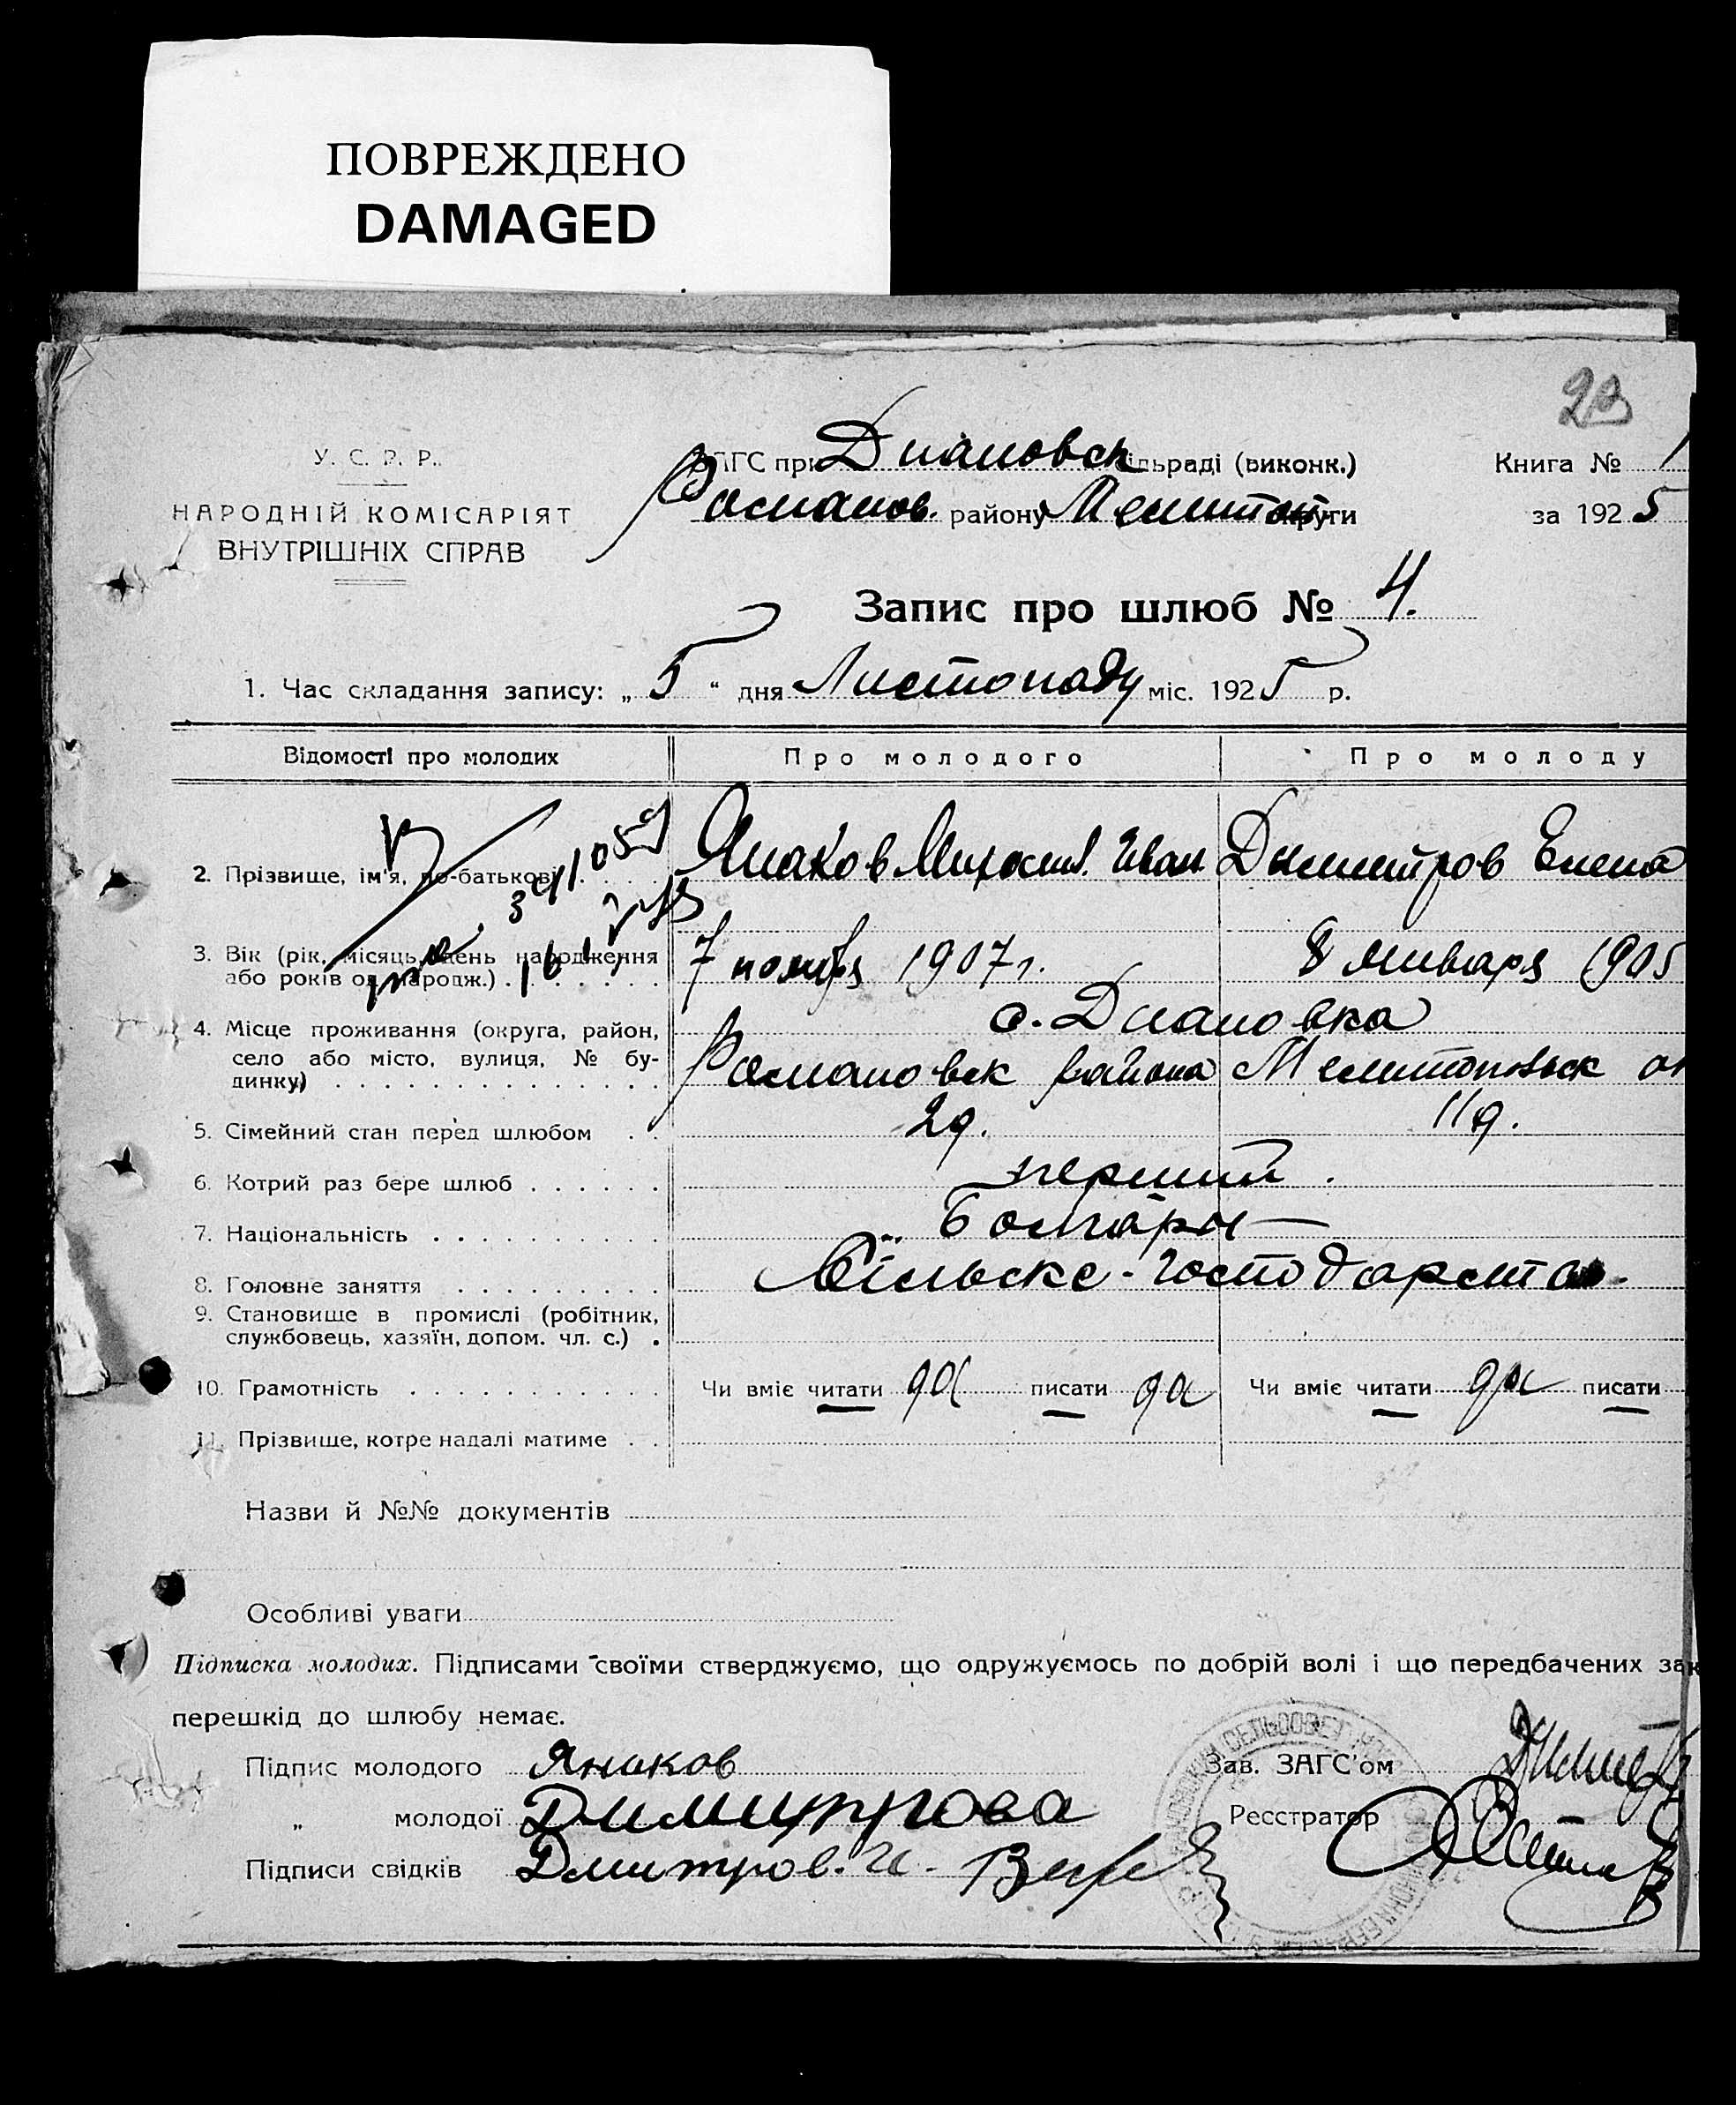 ПОВРЕЖДЕНО
DAMAGED
У. С. Р. Р.
НАРОДНІЙ КОМІСАРІЯТ
ВНУТРІШНІХ СПРАВ
ЗАГС при Диановск сільраді (виконк.)
Романов. району Мелитоп. округи
Книга № 1
за 1925
Запис про шлюб № 4.
1. Час складання запису: „ 5 “ дня Листопаду міс. 1925 р.
Відомості про молодих
Про молодого
Про молоду
2. Прізвище, ім'я, по-батькові
Янаков Михаил. Иван.
Димитров Елена
3. Вік (рік, місяць, день народження або років од народж.)
7 ноября 1907 г.
8 января 1905
4. Місце проживання (округа, район,
село або місто, вулиця, № бу-
динку)
с. Диановка
Романовск района Мелитопольск ок
5. Сімейний стан перед шлюбом
6. Котрий раз бере шлюб
перший.
7. Національність
Болгары
8. Головне заняття
Сільске-господарство.
9. Становище в промислі (робітник,
службовець, хазяїн, допом. чл. с.)
10. Грамотність
Чи вміє читати да писати да
Чи вміє читати да писати
11. Прізвище, котре надалі матиме
Назви й №№ документів
Особливі уваги
Підписка молодих. Підписами своїми стверджуємо, що одружуємось по добрій волі і що передбачених зак
перешкід до шлюбу немає.
Підпис молодого Янаков
„ молодої Димитрова
Підписи свідків Дмитров. И.
Зав. ЗАГС'ом
Реєстратор